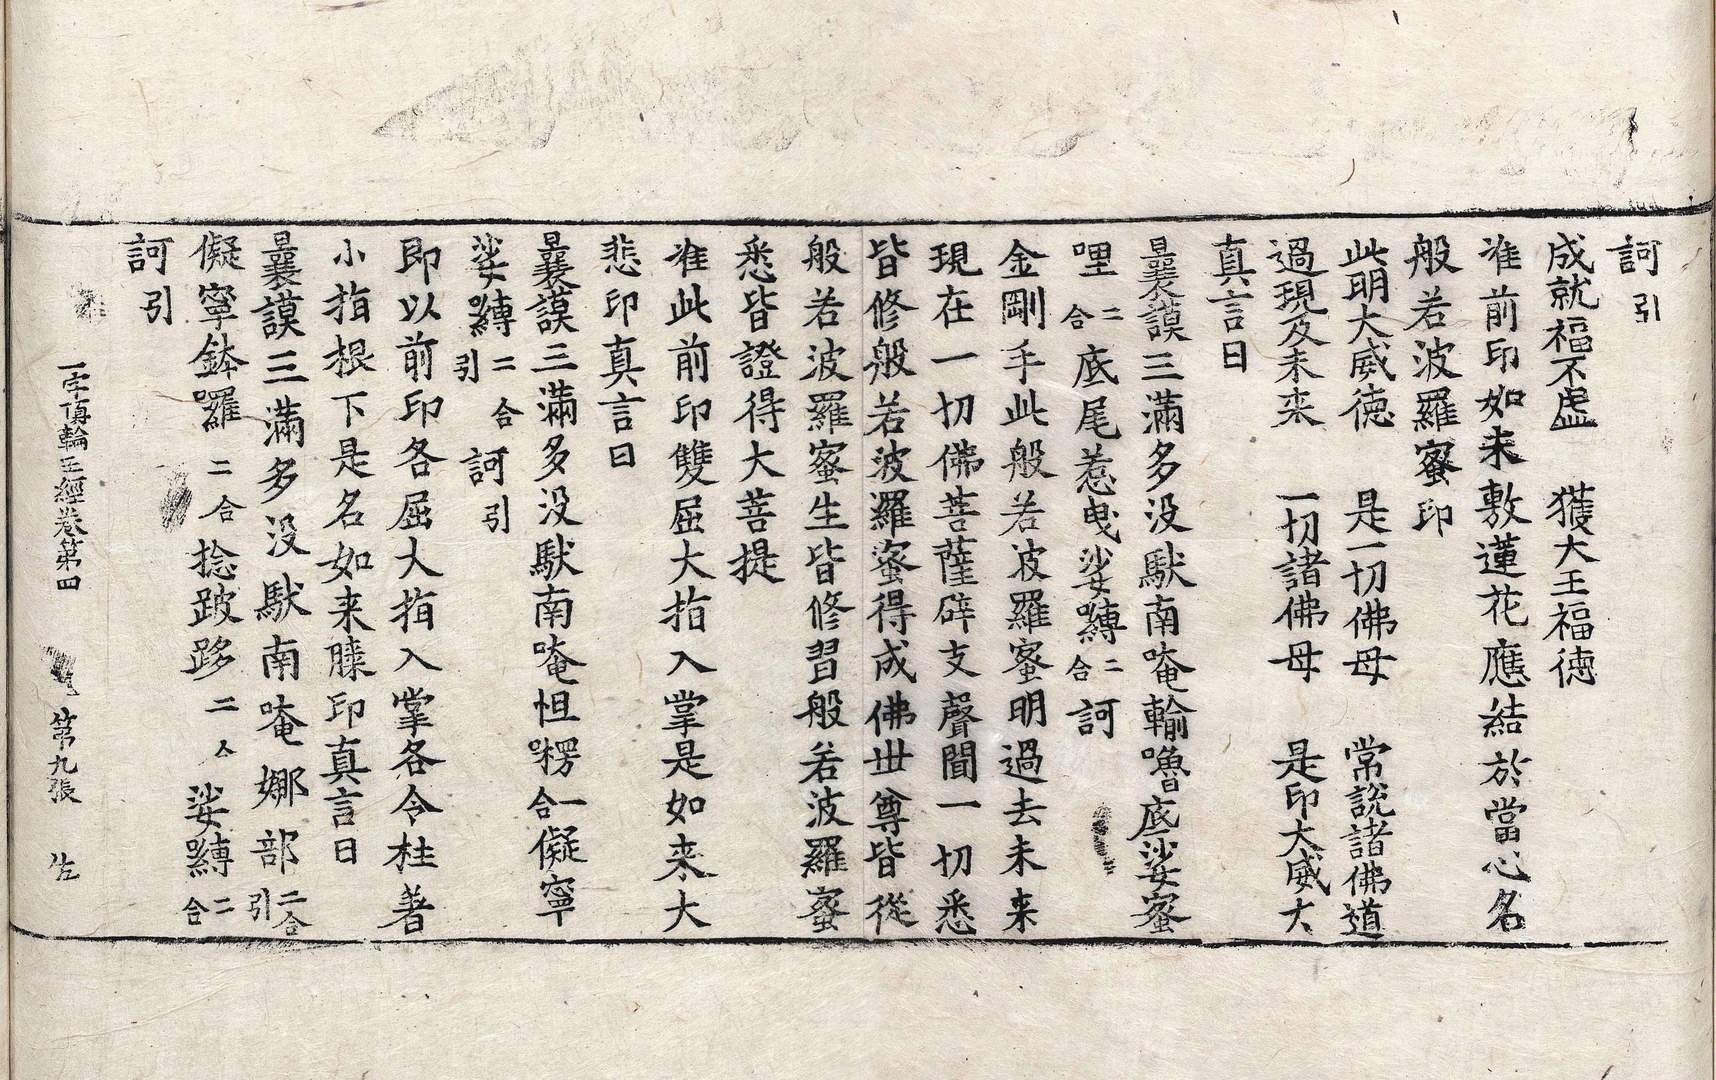 訶引
成就福不虛　獲大王福徳
准前印如来敷蓮花應結於當心名
般若波羅蜜印
此明大威徳　是一切佛母　常說諸佛道
過現及未来　一切諸佛母　是印大威大
真言曰
曩謨三滿多没馱南唵輸嚕底娑蜜
哩二合底尾惹曳娑嚩二合訶
金剛手此般若波羅蜜明過去未来
現在一切佛菩薩辟支聲聞一切悉
皆修般若波羅蜜得成佛世尊皆從
般若波羅蜜生皆修習般若波羅蜜
悉皆證得大菩提
准此前印雙屈大指入掌是如来大
悲印真言曰
曩謨三滿多没馱南唵怛㘄一合儗寧
娑嚩二合引訶引
即以前印各屈大指入掌各令柱著
小指根下是名如来膝印真言曰
曩謨三滿多没馱南唵娜部二合引
儗寧鉢囉二合捻跛跢二合娑嚩二合
訶引
一字頂輪王經卷第四　第九張　㔫